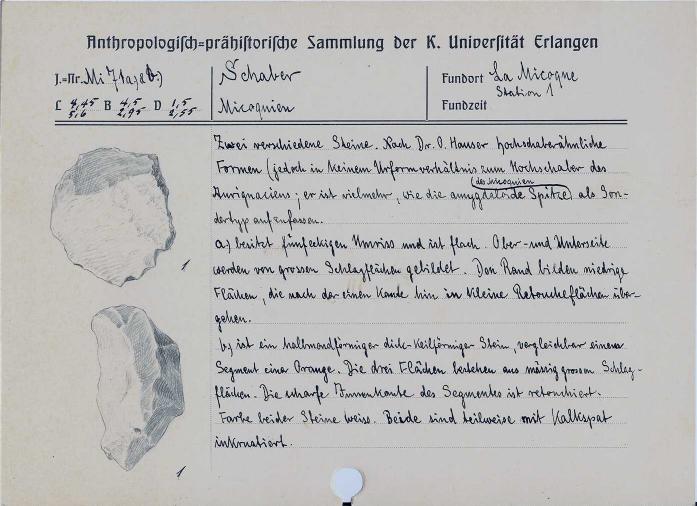 Anthropologisch=prähistorische Sammlung der K. Universität Erlangen
J.=Nr. Mi 71a, & b.)
Schaber
Fundort La Micoque
Station 1
L 4,45 B 4,5 D 1,5
5,6 2,95 2,55
Micoquien
Fundzeit
Zwei verschiedene Steine. Nach Dr. O. Hauser hochschaberähnliche
Formen (jedoch in keinem Urformverhältnis zum Hochschaber des
Aurignaciens; er ist vielmehr, wie die amygdaloide Spitze (des Micoquien) als Son-
dertyp aufzufassen.
a) besitzt fünfeckigen Umriss und ist flach. Ober- und Unterseite
werden von grossen Schlagflächen gebildet. Den Rand bilden niedrige
Flächen, die nach der einen Kante hin in kleine Retoucheflächen über-
gehen.
b) ist ein halbmondförmiger dick-keilförmiger Stein, vergleichbar einem
Segment einer Orange. Die drei Flächen bestehen aus mässig grossen Schlag-
flächen. Die scharfe Innenkante des Segmentes ist retouchiert.
Farbe beider Steine weiss. Beide sind teilweise mit Kalkspat
inkrustiert.
1
1